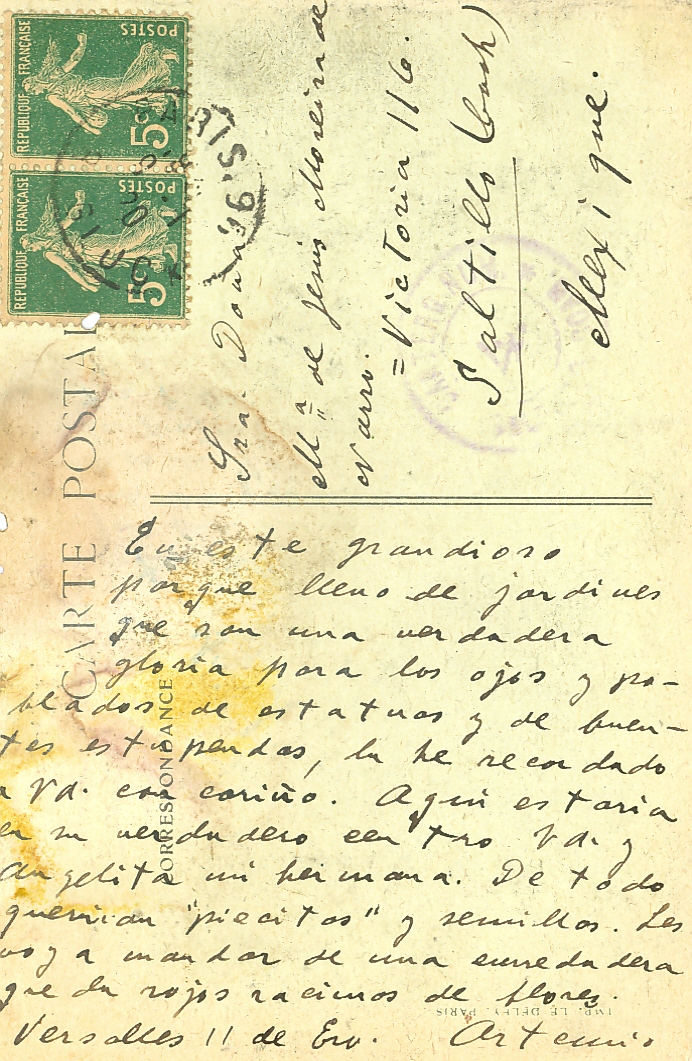 REPUBLIQUE FRANÇAISE
POSTES
5c
REPUBLIQUE FRANÇAISE
POSTES
5c
CARTE POSTAL
CORRESPONDANCE
Sra. Doña
Mª de Jesús Moreira de
Narro.
= Victoria 116.
Saltillo (Coah)
Mexique.
En este grandioso
parque lleno de jardines
que son una verdadera
gloria para los ojos y po-
blados de estatuas y de fuen-
tes estupendas, la he recordado
a Vd. con cariño. Aquí estaría
en su verdadero centro Vd. y
Angelita mi hermana. De todo
querrian "piecitos" y semillas. Les
voy a mandar de una enredadera
que da rojos racimos de flores.
Versalles 11 de Ero. Artemio
IMP. LE DELEY, PARIS